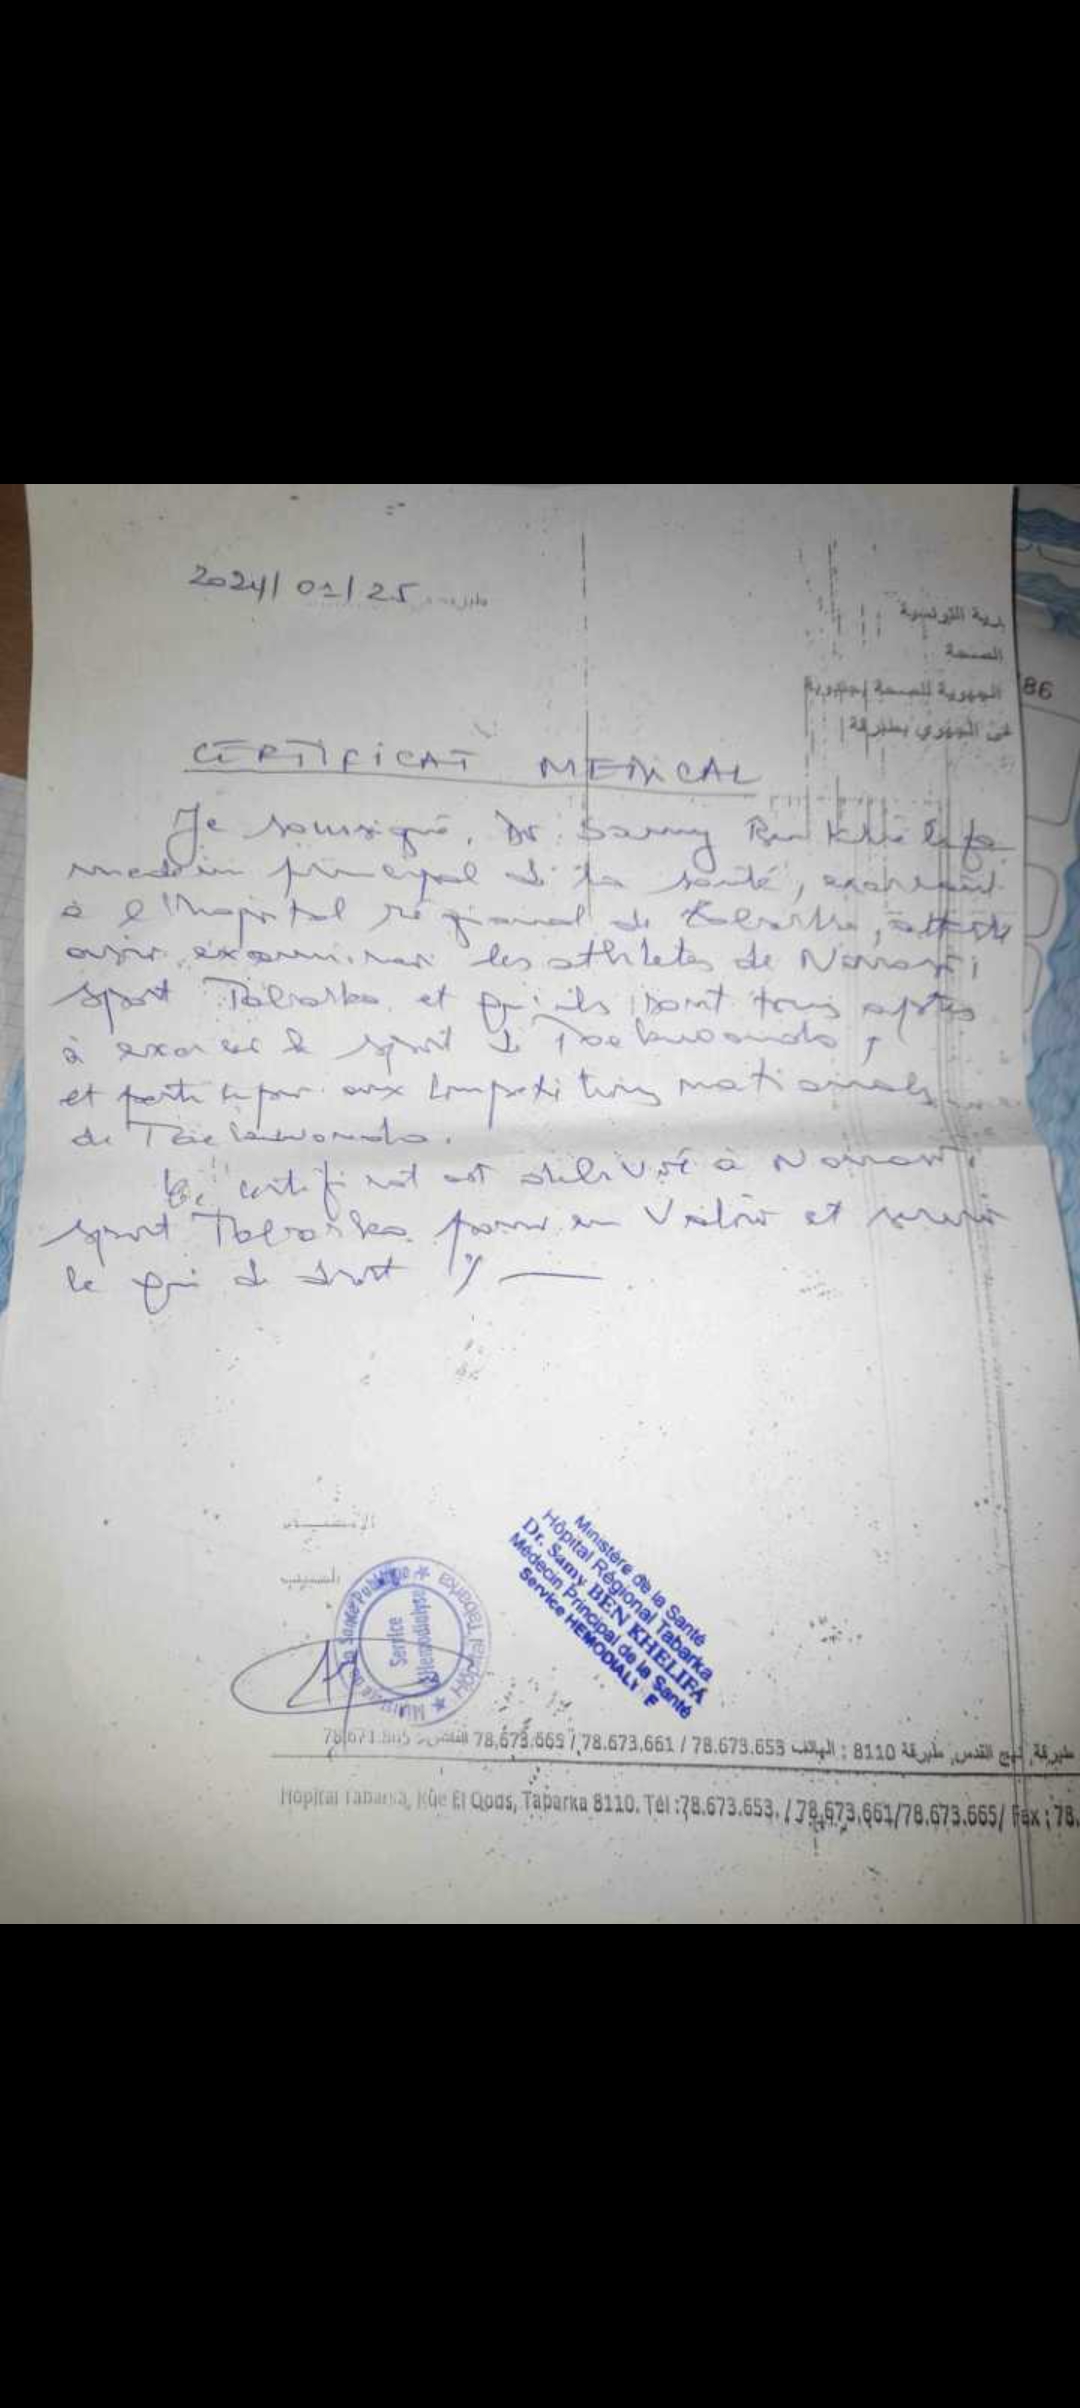 2024/ 01/ 25
الصحة
CERTIFICAT MEDICAL
Je soussigné, Dr. Samy Ben Khelifa
medecin principal de la santé, exerçant
à l'hopital régional de Tabarka, atteste
avoir examiner les athletes de Nouasri
sport Tabarka et qu'ils sont tous aptes
à exercer le sport de Taekwondo,
et participer aux competitions nationales
de Taekwondo.
Ce certificat est délivré à Nouasri
sport Tabarka pour en valoir et servir
le qui de droit
86
Ministère de la Santé
Hôpital Régional Tabarka
Dr. Samy BEN KHELIFA
Médecin Principal de la Santé
Service HEMODIALY E
Ministère de la Santé Publique ★ Hôpital Tabarka ★
Service
Hemodialyse
طبرقة, نهج القدس, طبرقة 8110 : الهاتف 78.673.653 / 78.673.661 / 78.673.665
Hôpital Tabarka, Rue El Qods, Tabarka 8110. Tél :78.673.653. / 78.673.661/78.673.665/ Fax : 78.